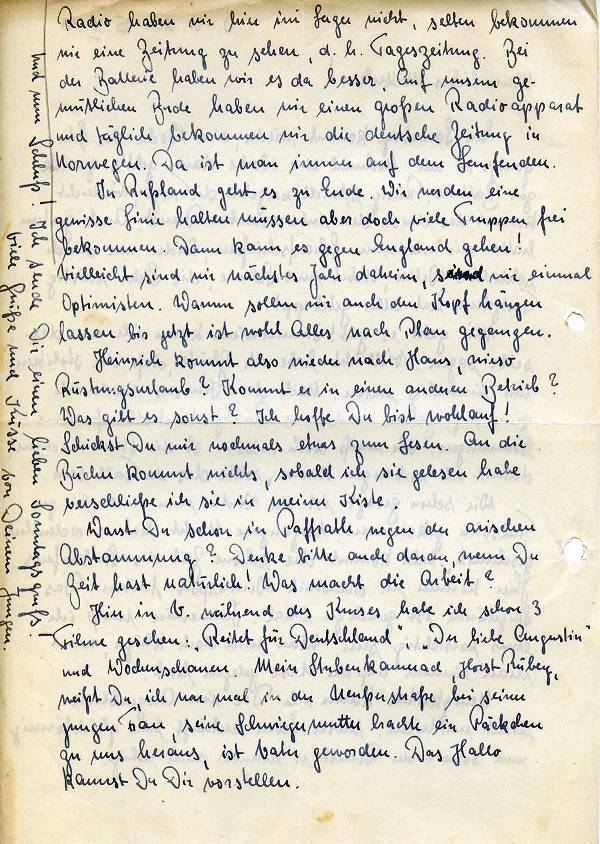 Radio haben wir hier im Lager nicht, selten bekommen
wir eine Zeitung zu sehen, d. h. Tageszeitung. Bei
der Batterie haben wir es da besser. Auf unserer ge-
mütlichen Bude haben wir einen großen Radioapparat
und täglich bekommen wir die deutsche Zeitung in
Norwegen. Da ist man immer auf dem Laufenden.
In Rußland geht es zu Ende. Wir werden eine
gewisse Linie halten müssen aber doch viele Truppen frei
bekommen. Dann kann es gegen England gehen!
Vielleicht sind wir nächstes Jahr daheim, sind wir einmal
Optimisten. Warum sollen wir auch den Kopf hängen
lassen bis jetzt ist wohl Alles nach Plan gegangen.
Heinrich kommt also wieder nach Haus, wieso
Rüstungsurlaub? Kommt er in einen anderen Betrieb?
Was gibt es sonst? Ich hoffe Du bist wohlauf!
Schickst Du mir nochmals etwas zum Lesen. An die
Bücher kommt nichts, sobald ich sie gelesen habe
verschließe ich sie in meiner Kiste.
Warst Du schon in Paffrath wegen der arischen
Abstammung? Denke bitte auch daran, wenn Du
Zeit hast natürlich! Was macht die Arbeit?
Hier in V. während des Kurses habe ich schon 3
Filme gesehen: „Reitet für Deutschland", „Der liebe Augustin"
und Wochenschauen. Mein Stubenkamerad, Horst
weißt Du, ich war mal in der Neußerstraße bei seiner
jungen Frau, seine Schwiegermutter brachte ein Päckchen
zu uns heraus, ist Vater geworden. Das Hallo
kannst Du Dir vorstellen.
Und nun Schluß! Ich sende Dir einen lieben Sonntagsgruß!
viele Grüße und Küsse von Deinem Jungen.